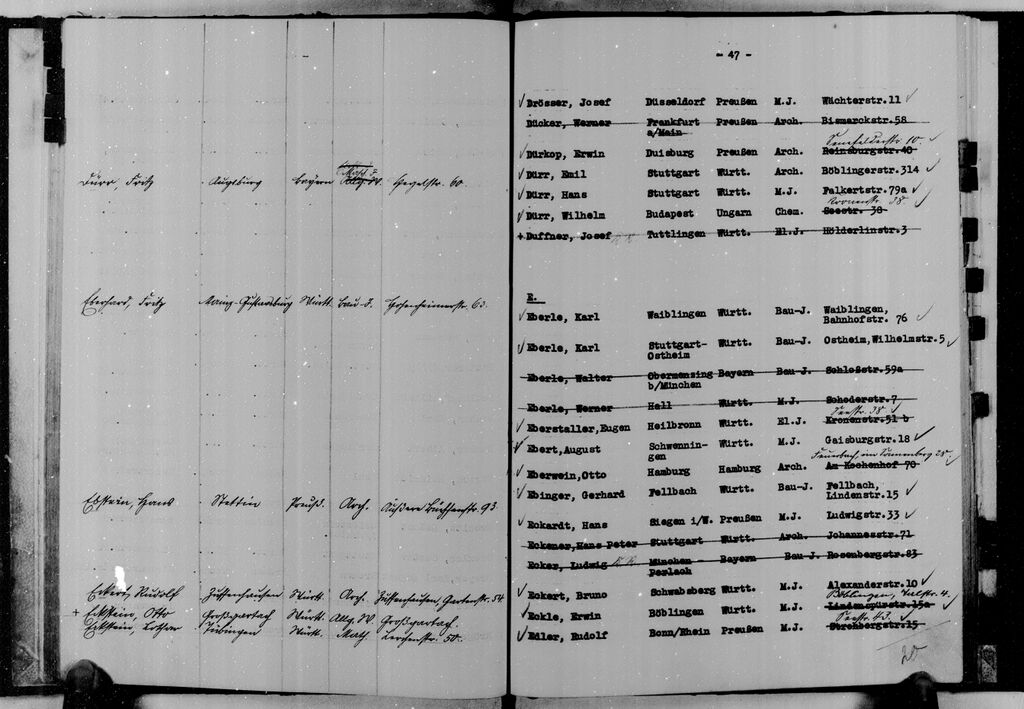 Dürr, Fritz Augsburg Bayern Allg. W. Hegelstr. 60.
Eberhard, Fritz Mainz-Gustavsburg Württ. Bau-J. Hohenheimerstr. 63.
Ebstein, Hans Stettin Preuß. Arch. Äußere 93
Eckert, Rudolf Zuffenhausen Württ. Arch. Zuffenhausen, Gartenstr. 54
+ Eckstein, Otto Großgartach Württ. Allg. W. Großgartach.
Eckstein, Lothar Tübingen Württ. Math Lerchenstr. 50.
- 47 -
Drösser, Josef Düsseldorf Preußen M.J. Wächterstr.11
Dücker, Werner Frankfurt Preußen Arch. Bismarckstr.58
a/Main
Senefelderstr. 10.
Dürkop, Erwin Duisburg Preußen Arch. Reinsburgstr.40
Dürr, Emil Stuttgart Württ. Arch. Böblingerstr.314
Dürr, Hans Stuttgart Württ. M.J. Falkertstr.79a
Kronenstr. 38.
Dürr, Wilhelm Budapest Ungarn Chem. Seestr. 38
+ Duffner, Josef Tuttlingen Württ. El.J. Hölderlinstr.3
E.
Eberle, Karl Waiblingen Württ. Bau-J. Waiblingen,
Bahnhofstr. 76
Eberle, Karl Stuttgart- Württ. Bau-J. Ostheim,Wilhelmstr.5
Ostheim
Eberle, Walter Obermenzing Bayern Bau-J. Schloßstr.59a
b/München
Eberle, Werner Hall Württ. M.J. Schoderstr.7
Seestr. 38
Eberstaller,Eugen Heilbronn Württ. El.J. Kronenstr.51 b
Ebert,August Schwennin- Württ. M.J. Gaisburgstr.18
gen
Feuerbach, am Sonnenberg 25.
Eberwein,Otto Hamburg Hamburg Arch. Am Kochenhof 70
Ebinger, Gerhard Fellbach Württ. Bau-J. Fellbach,
Lindenstr.15
Eckardt, Hans Siegen i/W. Preußen M.J. Ludwigstr.33
Eckener,Hans Peter Stuttgart Württ. Arch. Johannesstr.71
Ecker, Ludwig München Bayern Bau-J. Rosenbergstr.83
Perlach
Eckert, Bruno Schwabsberg Württ. M.J. Alexanderstr.10
Böblingen, Talstr. 4.
Eckle, Erwin Böblingen Württ. M.J. Lindenspürstr.15a
Seestr. 43.
Edler, Rudolf Bonn/Rhein Preußen M.J. Strohbergstr.15
20